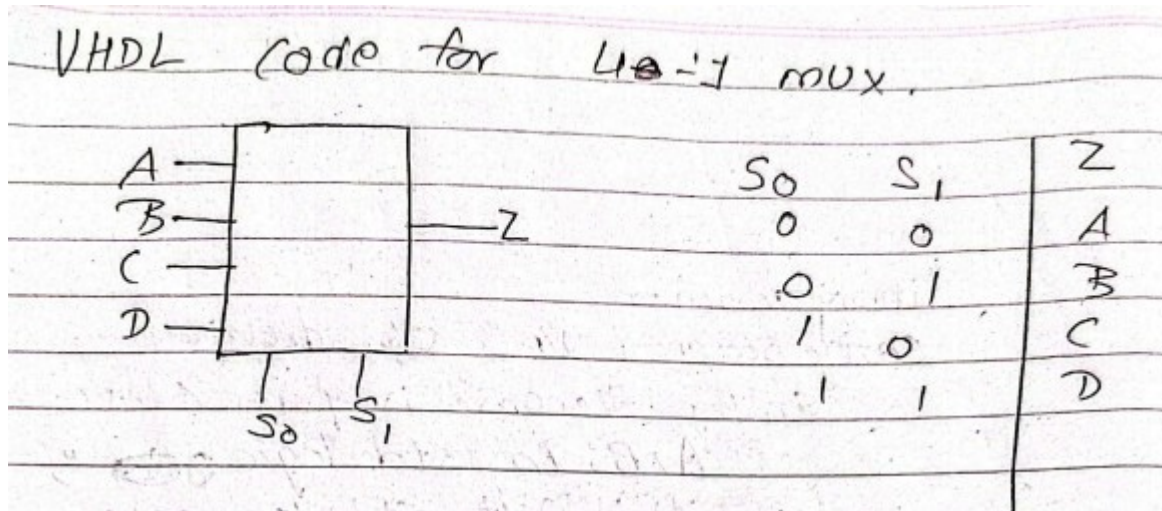 VHDL Code for 4:1 mux.
A
B
C
D
Z
S0 S1
S0 S1 Z
0 0 A
0 1 B
1 0 C
1 1 D